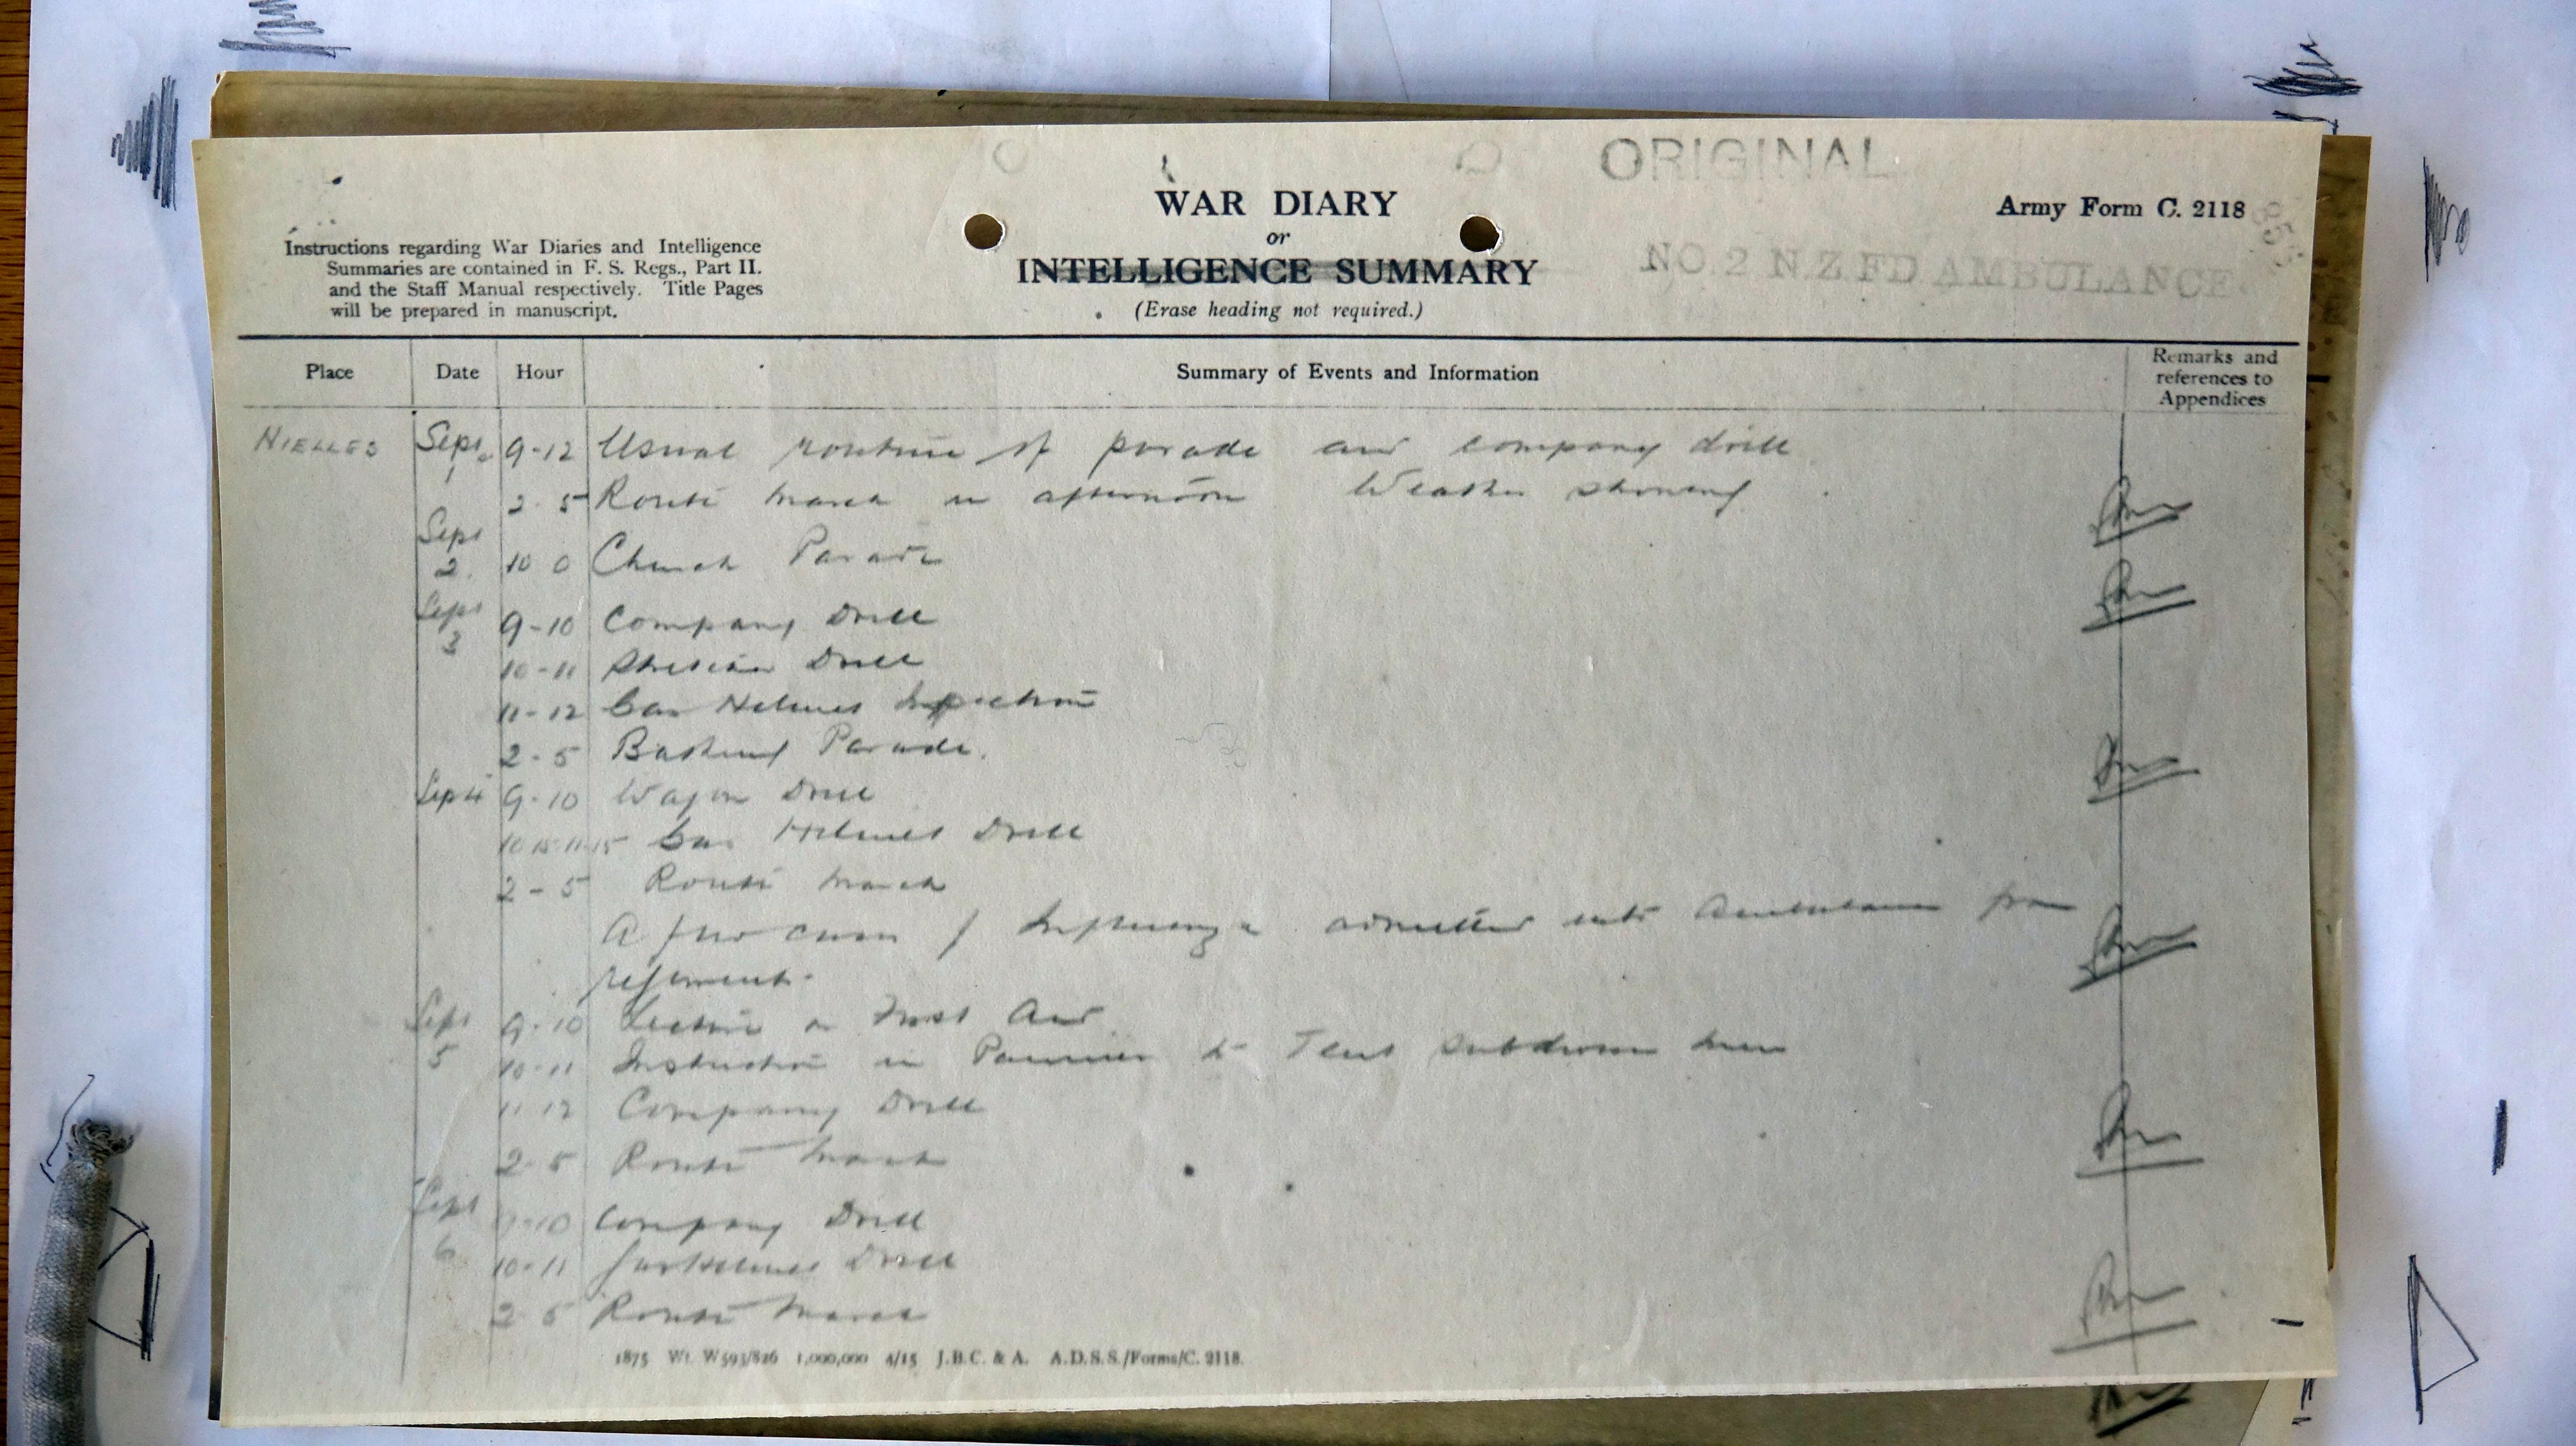 ORIGINAL
WAR DIARY
Army Form C. 2118
or
INTELLIGENCE SUMMARY
NO 2 N.Z. FD AMBULANCE.
(Erase heading not required.)
Instructions regarding War Diaries and Intelligence
Summaries are contained in F. S. Regs., Part II.
and the Staff Manual respectively. Title Pages
will be prepared in manuscript.
Place Date Hour Summary of Events and Information Remarks and references to Appendices
NIELLES Sept 1 9-12 Usual routine of parade and company drill
2-5 Route march in afternoon Weather showery.
Sept 2. 10 0 Church Parade
Sept 3 9-10 Company Drill
10-11 Stretcher Drill
11-12 Gas Helmet Inspection
2-5 Bathing Parade.
Sep 4 9-10 Wagon Drill
10.15-11.15 Gas Helmet Drill
2-5 Route march
A few cases of Influenza admitted into Ambulance from
regiment.
Sept 5 9-10 Lecture on First Aid
10-11 Instruction in Pannier to Tent Subdivision men
11-12 Company Drill
2-5 Route march
Sept 6 9-10 Company Drill
10-11 Gas Helmet Drill
2-5 Route march
1875 Wt. W593/826 1,000,000 4/15 J.B.C. & A. A.D.S.S./Forms/C. 2118.